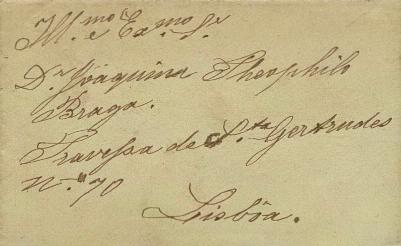 Ill.mo e Ex.mo Sr.
Dr. Joaquim Theophilo
Braga.
Travessa de S.ta Gertrudes
N.º 70
Lisbôa.